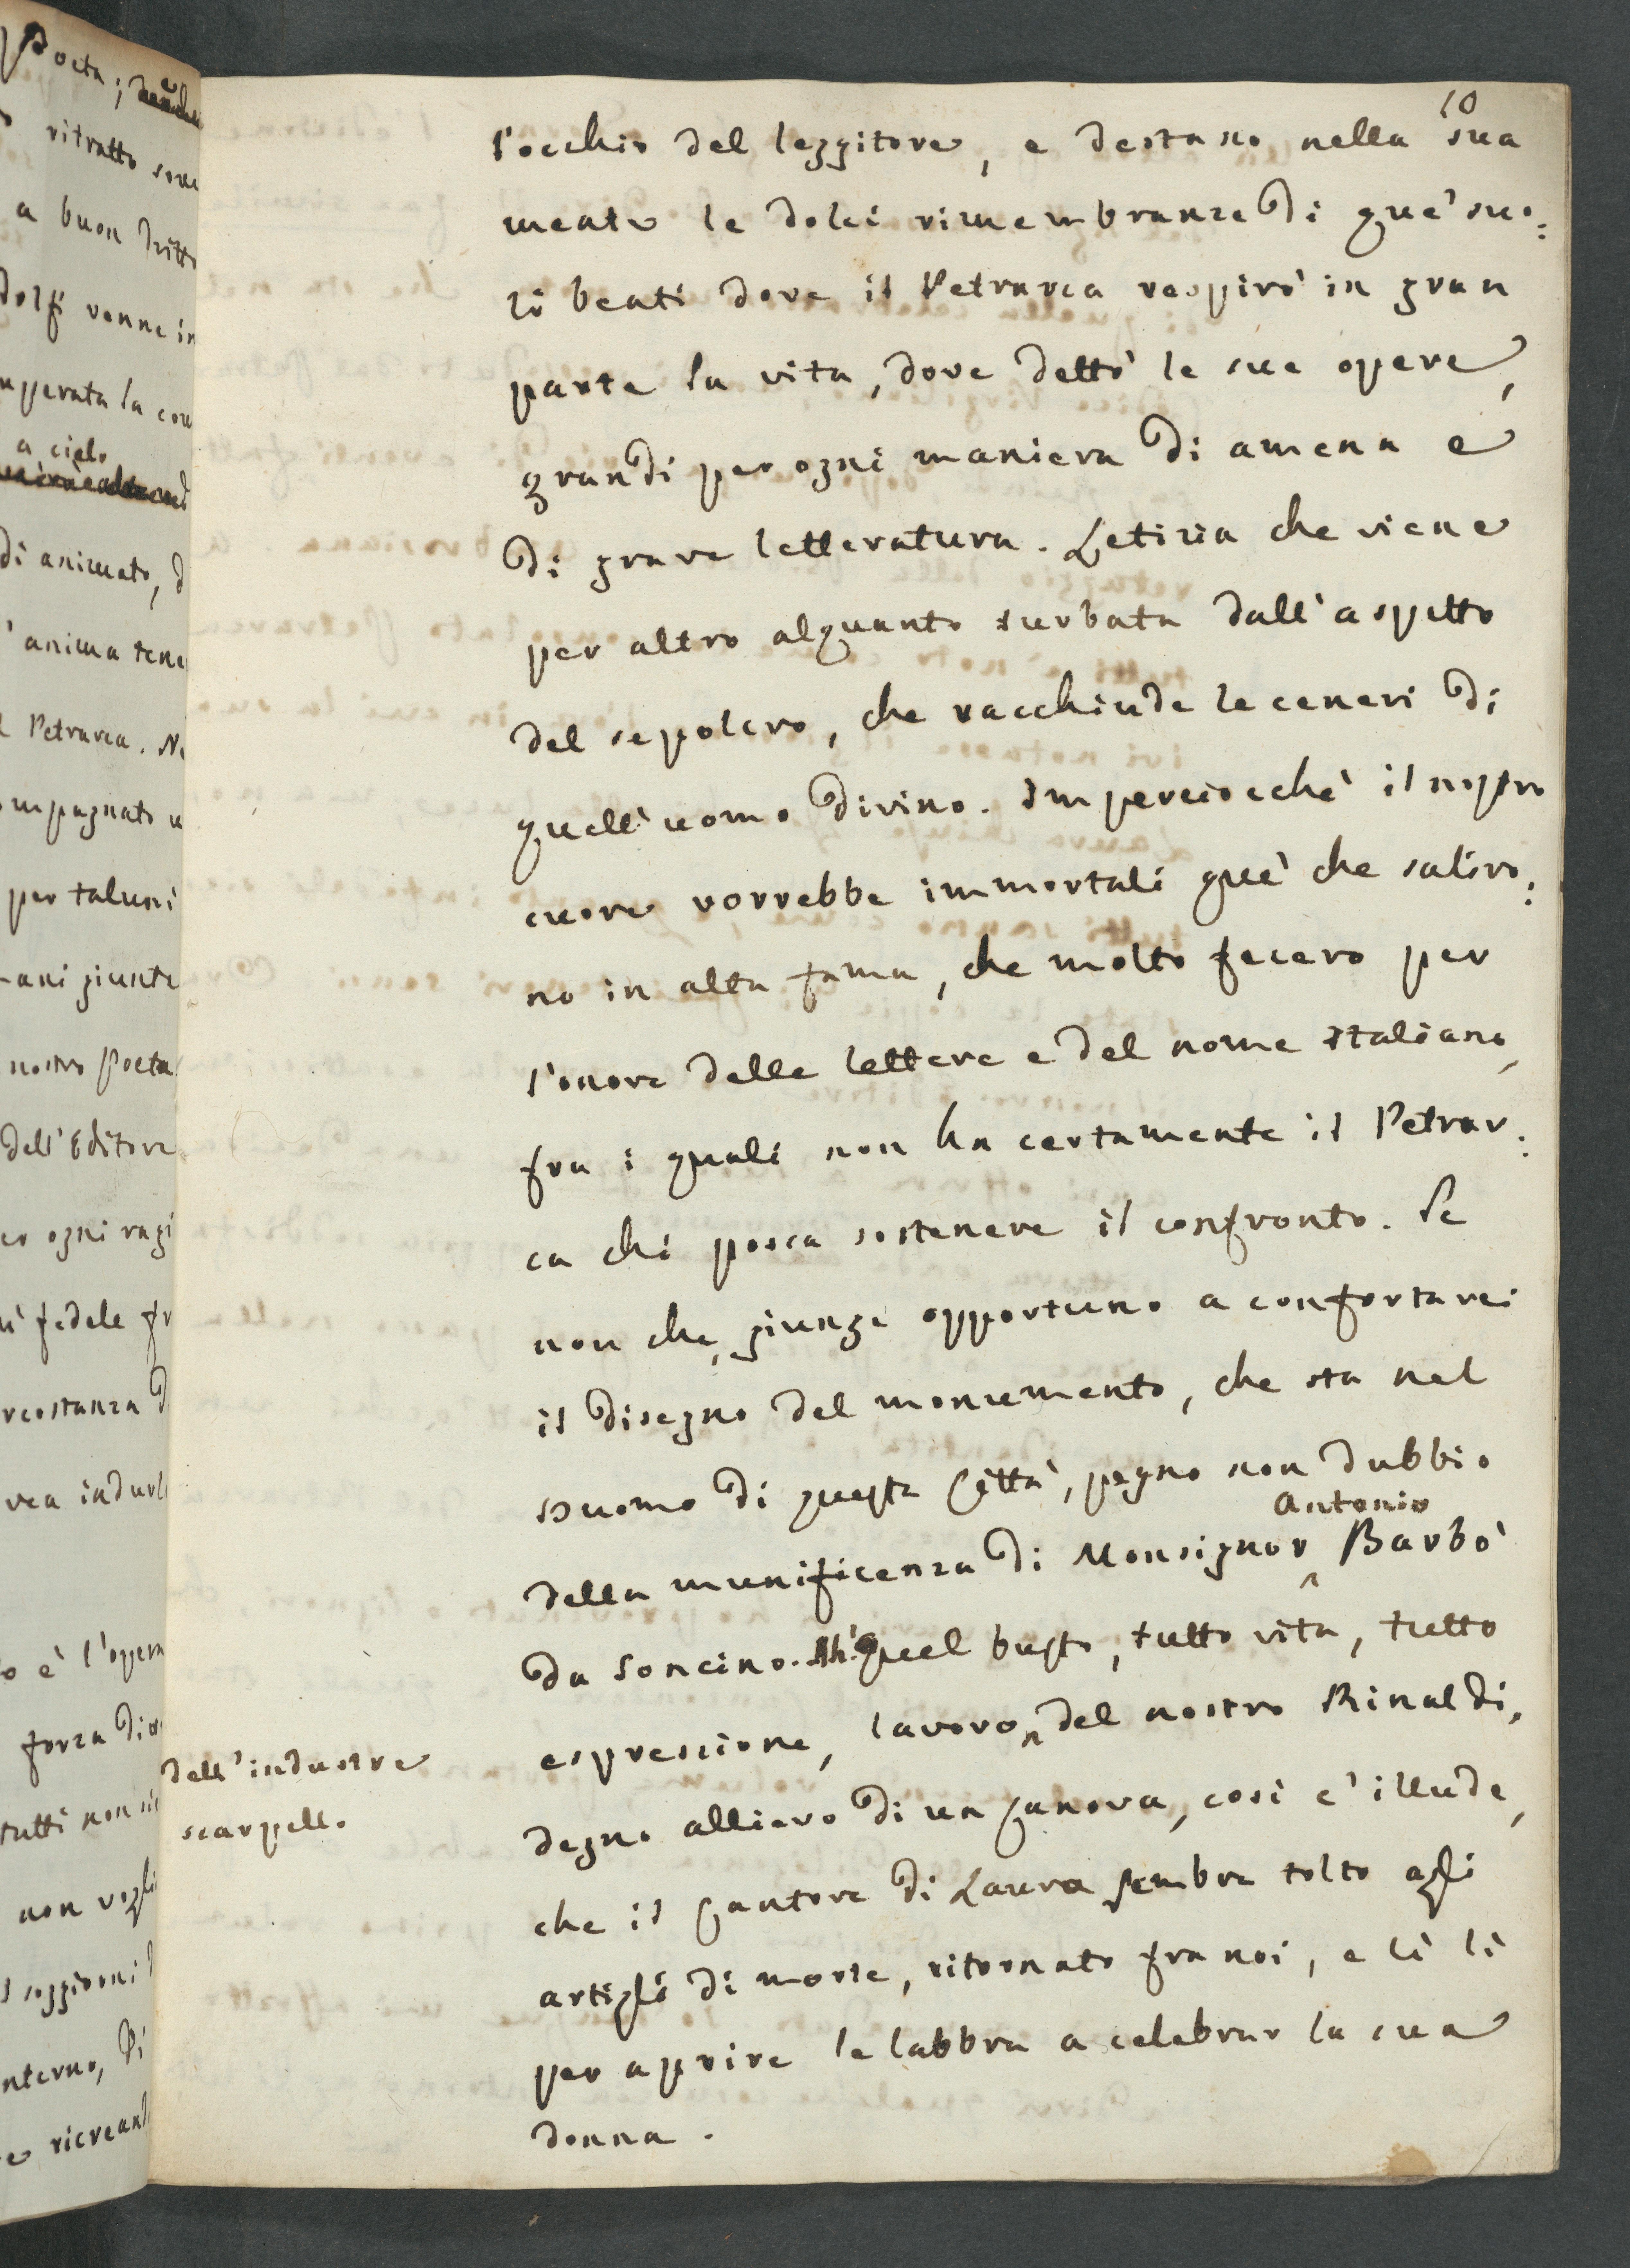 Poeta; 
ritratto
a buon dritto
dolfi venne in
a cielo
di animato, d
anima
Petrarca.
per taluni
giunte
nostro Poeta
dell'Editore
ogni
fedele
è l'opera
forza
tutti non
non
10
l'occhio del leggitore, e destano nella sua
mente le dolci rimembranze di que' suo:
li beati dove il Petrarca respirò in gran
parte la vita, dove dettò le sue opere,
grandi per ogni maniera di amena e
di grave letteratura. Letizia che viene
per altro alquanto turbata dall'aspetto
del sepolcro, che racchiude le ceneri di
quell'uomo divino. Imperciocchè il nostro
cuore vorrebbe immortali que' che saliro:
no in alta fama, che molto fecero per
l'onore delle lettere e del nome italiano,
fra i quali non ha certamente il Petrar:
ca chi possa sostenere il confronto. Se
non che, giunge opportuno a confortarci
il disegno del monumento, che sta nel
Duomo di questa Città, pegno non dubbio
Antonio
della munificenza di Monsignor Barbò
da Soncino. Ah! Quel busto, tutto vita, tutto
espressione, lavoro del nostro Rinaldi,
dell'industre
scarpello
degno allievo di un Canova, così c'illude,
che il Cantore di Laura sembra tolto agli
artigli di morte, ritornato fra noi, e lì lì
per aprire le labbra a celebrar la sua
donna.